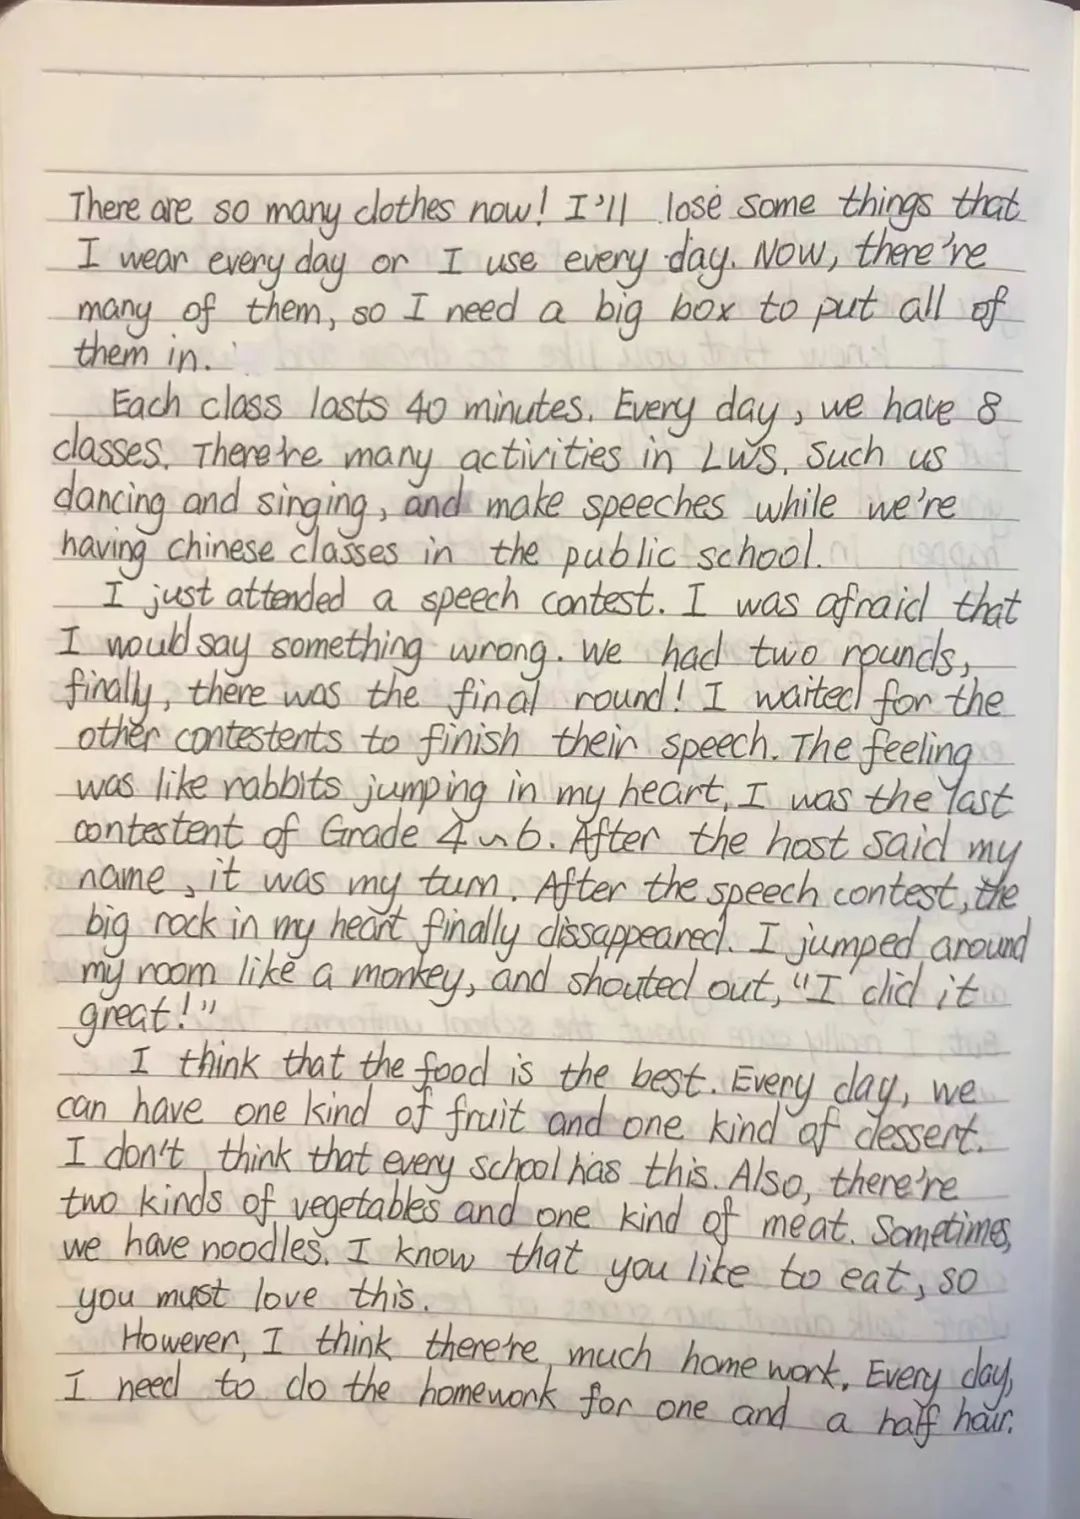 There are so many clothes now! I'll lose some things that
I wear every day or I use every day. Now, there're
many of them, so I need a big box to put all of
them in.
Each class lasts 40 minutes. Every day, we have 8
classes. There're many activities in LWS. Such us
dancing and singing, and make speeches while we're
having chinese classes in the public school.
I just attended a speech contest. I was afraid that
I would say something wrong. We had two rounds,
finally, there was the final round! I waited for the
other contestents to finish their speech. The feeling
was like rabbits jumping in my heart, I was the last
contestent of Grade 4~6. After the host said my
name, it was my turn. After the speech contest, the
big rock in my heart finally dissappeared. I jumped around
my room like a monkey, and shouted out, "I did it
great!"
I think that the food is the best. Every day, we
can have one kind of fruit and one kind of dessert.
I don't think that every school has this. Also, there're
two kinds of vegetables and one kind of meat. Sometimes,
we have noodles. I know that you like to eat, so
you must love this.
However, I think there're much home work. Every day,
I need to do the homework for one and a half hour.